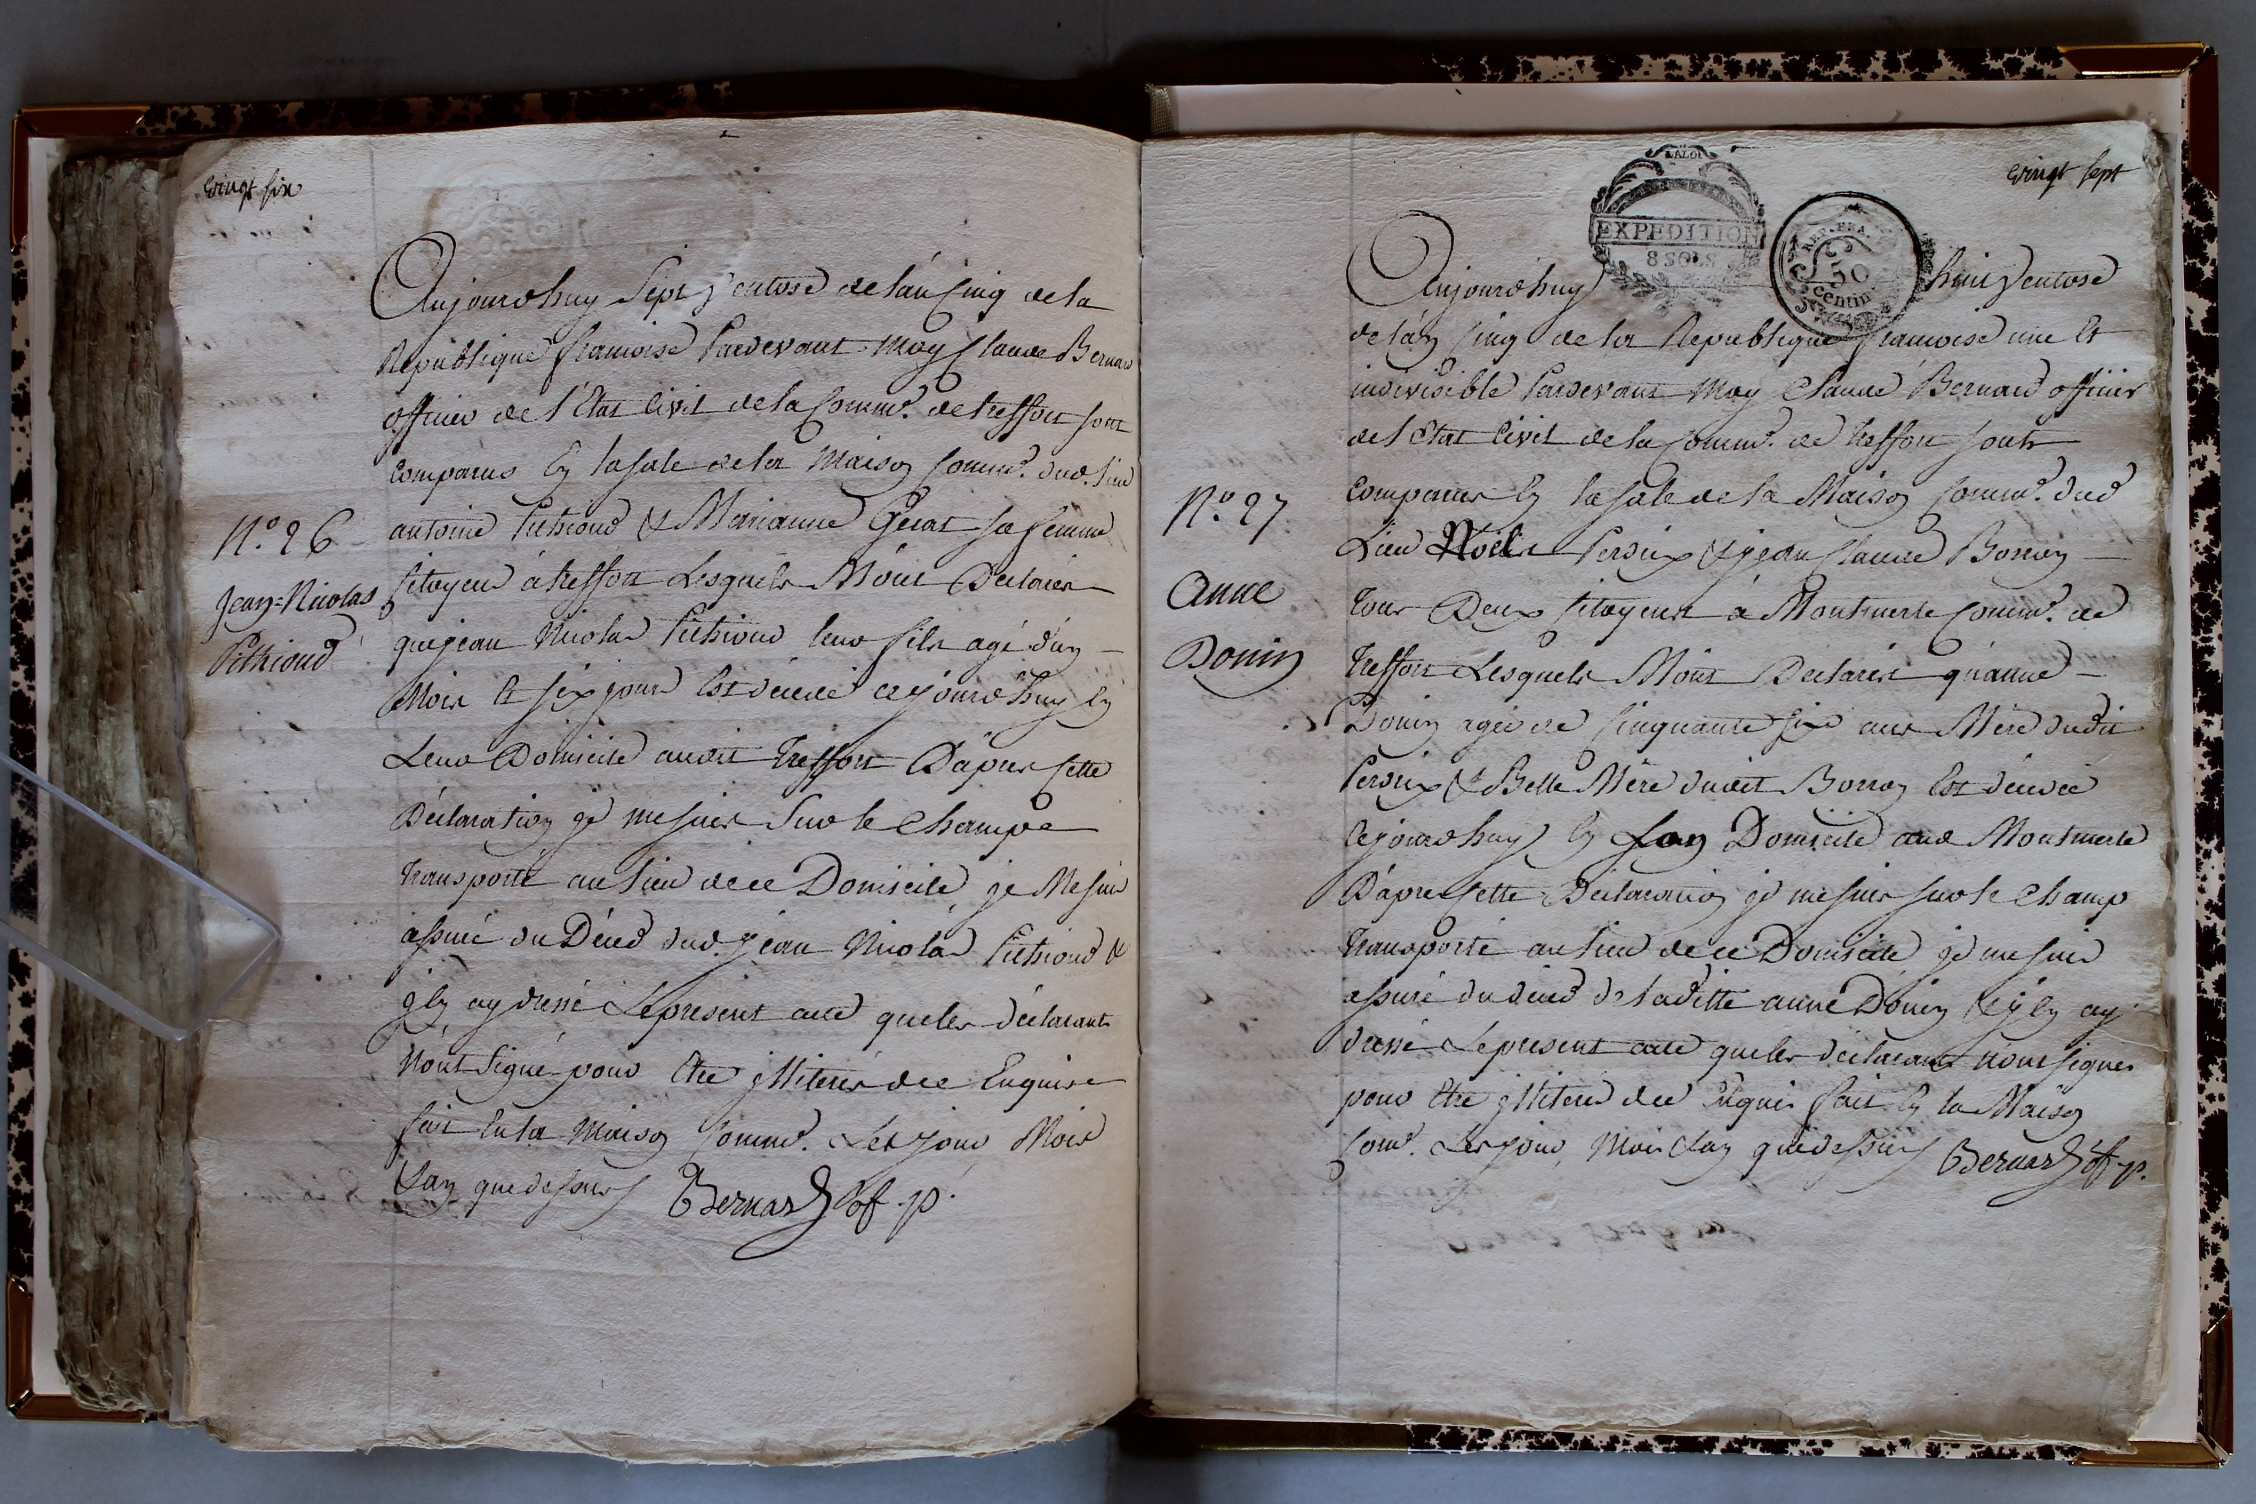 vingt six
Aujourdhuy Sept Ventose de l'an Cinq de la
Republique francoise Pardevant moy Claude Bernard
officier de l'Etat Civil de la Comm.e de treffort sont
comparus En la sale de la maison Comm.e dud. lieu
antoine Pithioud & Marianne Gerat sa femme
N.o 26
Jean=Nicolas
Pithioud
Citoyens à treffort Lesquels M'ont Declarés
que jean Nicolas Pithioud leur fils agé d'un
Mois Et six jours Est décédé ce jourdhuy En
Leur Domicile audit treffort D'aprés Cette
Déclaration je me suis Sur le Champ
transporté au lieu de ce Domicile, je Me suis
assuré du Décéd dud. jean Nicolas Pithioud &
j'En ay dressé Le présent acte que les déclarants
N'ont Signé pour Etre illiterés de ce Enquis
fait En la Maison Comm.e Les jour Mois
& an que dessus
Bernard of. p.
vingt sept
LA LOI
EXPEDITION
8 SOLS
REP. FRA.
50
Centim.
Aujourdhuy huit Ventose
de l'an Cinq de la Republique francoise une Et
indivisible Pardevant Moy Claude Bernard officier
de l'Etat Civil de la Comm.e de treffort sonts
comparus En la sale de la Maison Comm.e dud
N.o 27
Anne
Donin
Lieu Noël Perdrix & jean Claude Borron
tous Deux Citoyens à Montmerle Comm.e de
treffort Lesquels M'ont Declarés qu'anne
Donin agée de Cinquante six ans Mère dudit
Perdrix & Belle Mère dudit Borron Est décédée
cejourdhuy En son Domicile aud Montmerle
D'aprés Cette Déclaration je me suis sur le Champ
transporté au lieu de ce Domicile je me suis
assuré du décéd de laditte anne Donin & j'En ay
dressé Le présent acte que les déclarants n'ont signés
pour Etre illiterés de ce Enquis fait En la Maison
Com.e Les jour, Mois & an que dessus
Bernard of. p.